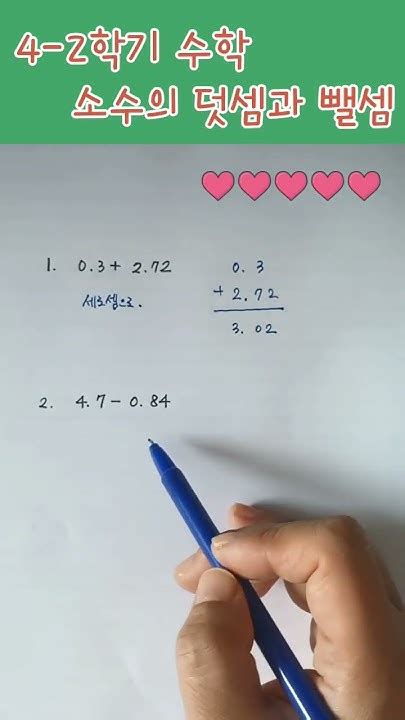 4-2학기 수학
소수의 덧셈과 뺄셈
1. 0.3 + 2.72
세로셈으로.
0.3
+ 2.72
3.02
2. 4.7 - 0.84